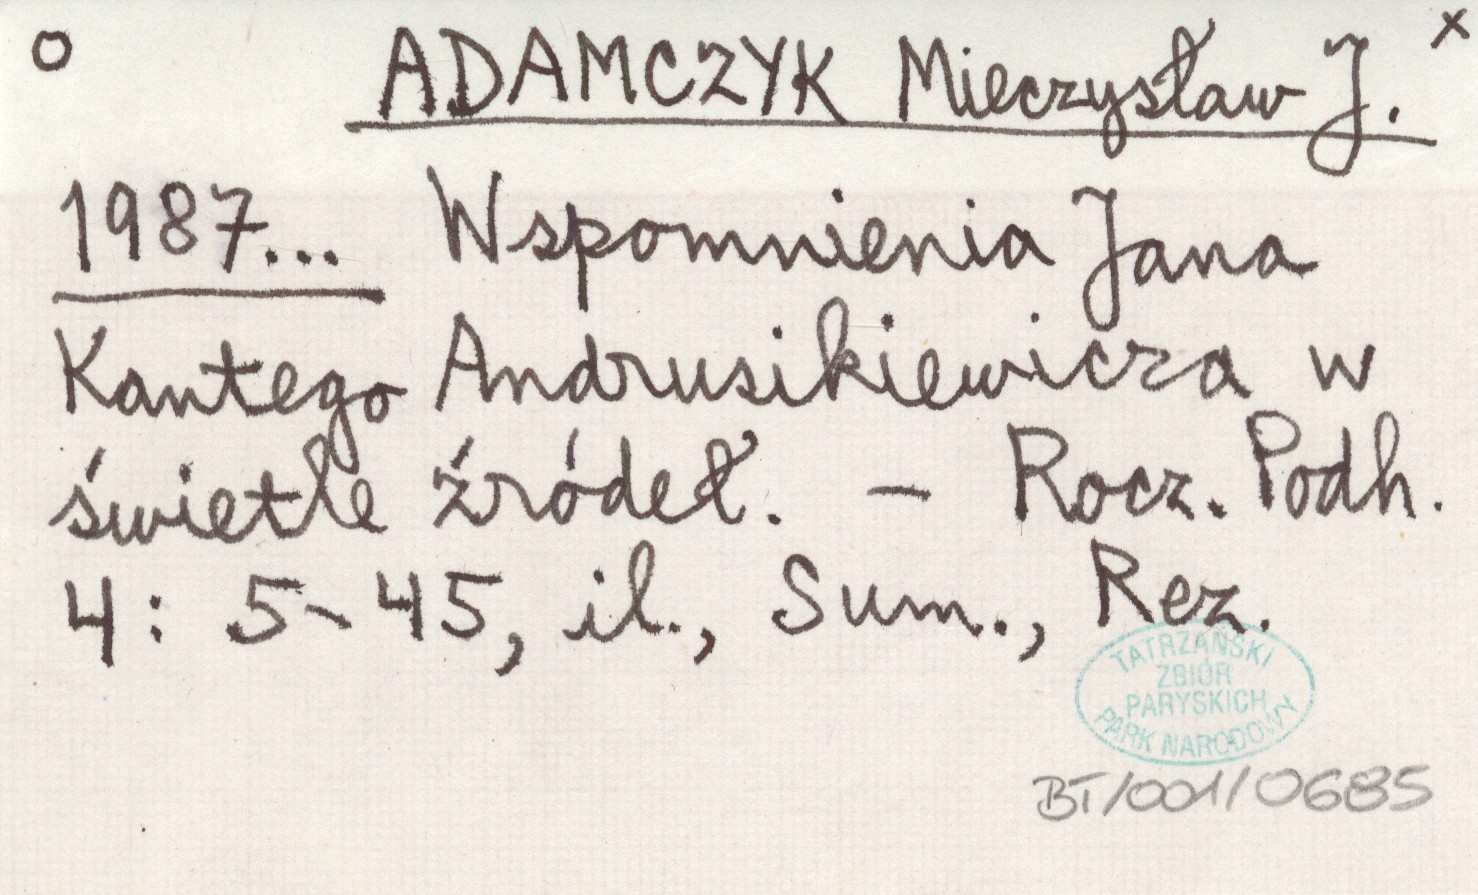 o ADAMCZYK Mieczysław J. x
1987... Wspomnienia Jana
Kantego Andrusikiewicza w
świetle źródeł. – Rocz. Podh.
4: 5-45, il., Sum., Rez.
TATRZAŃSKI
ZBIÓR
PARYSKICH
PARK NARODOWY
BT/001/0685